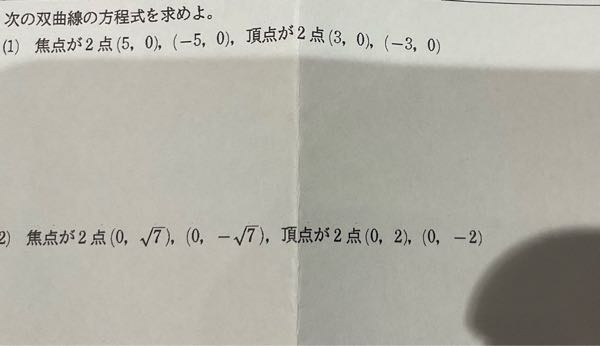 次の双曲線の方程式を求めよ。
(1) 焦点が2点(5, 0), (−5, 0), 頂点が2点(3, 0), (−3, 0)
2) 焦点が2点(0, √7), (0, −√7), 頂点が2点(0, 2), (0, −2)